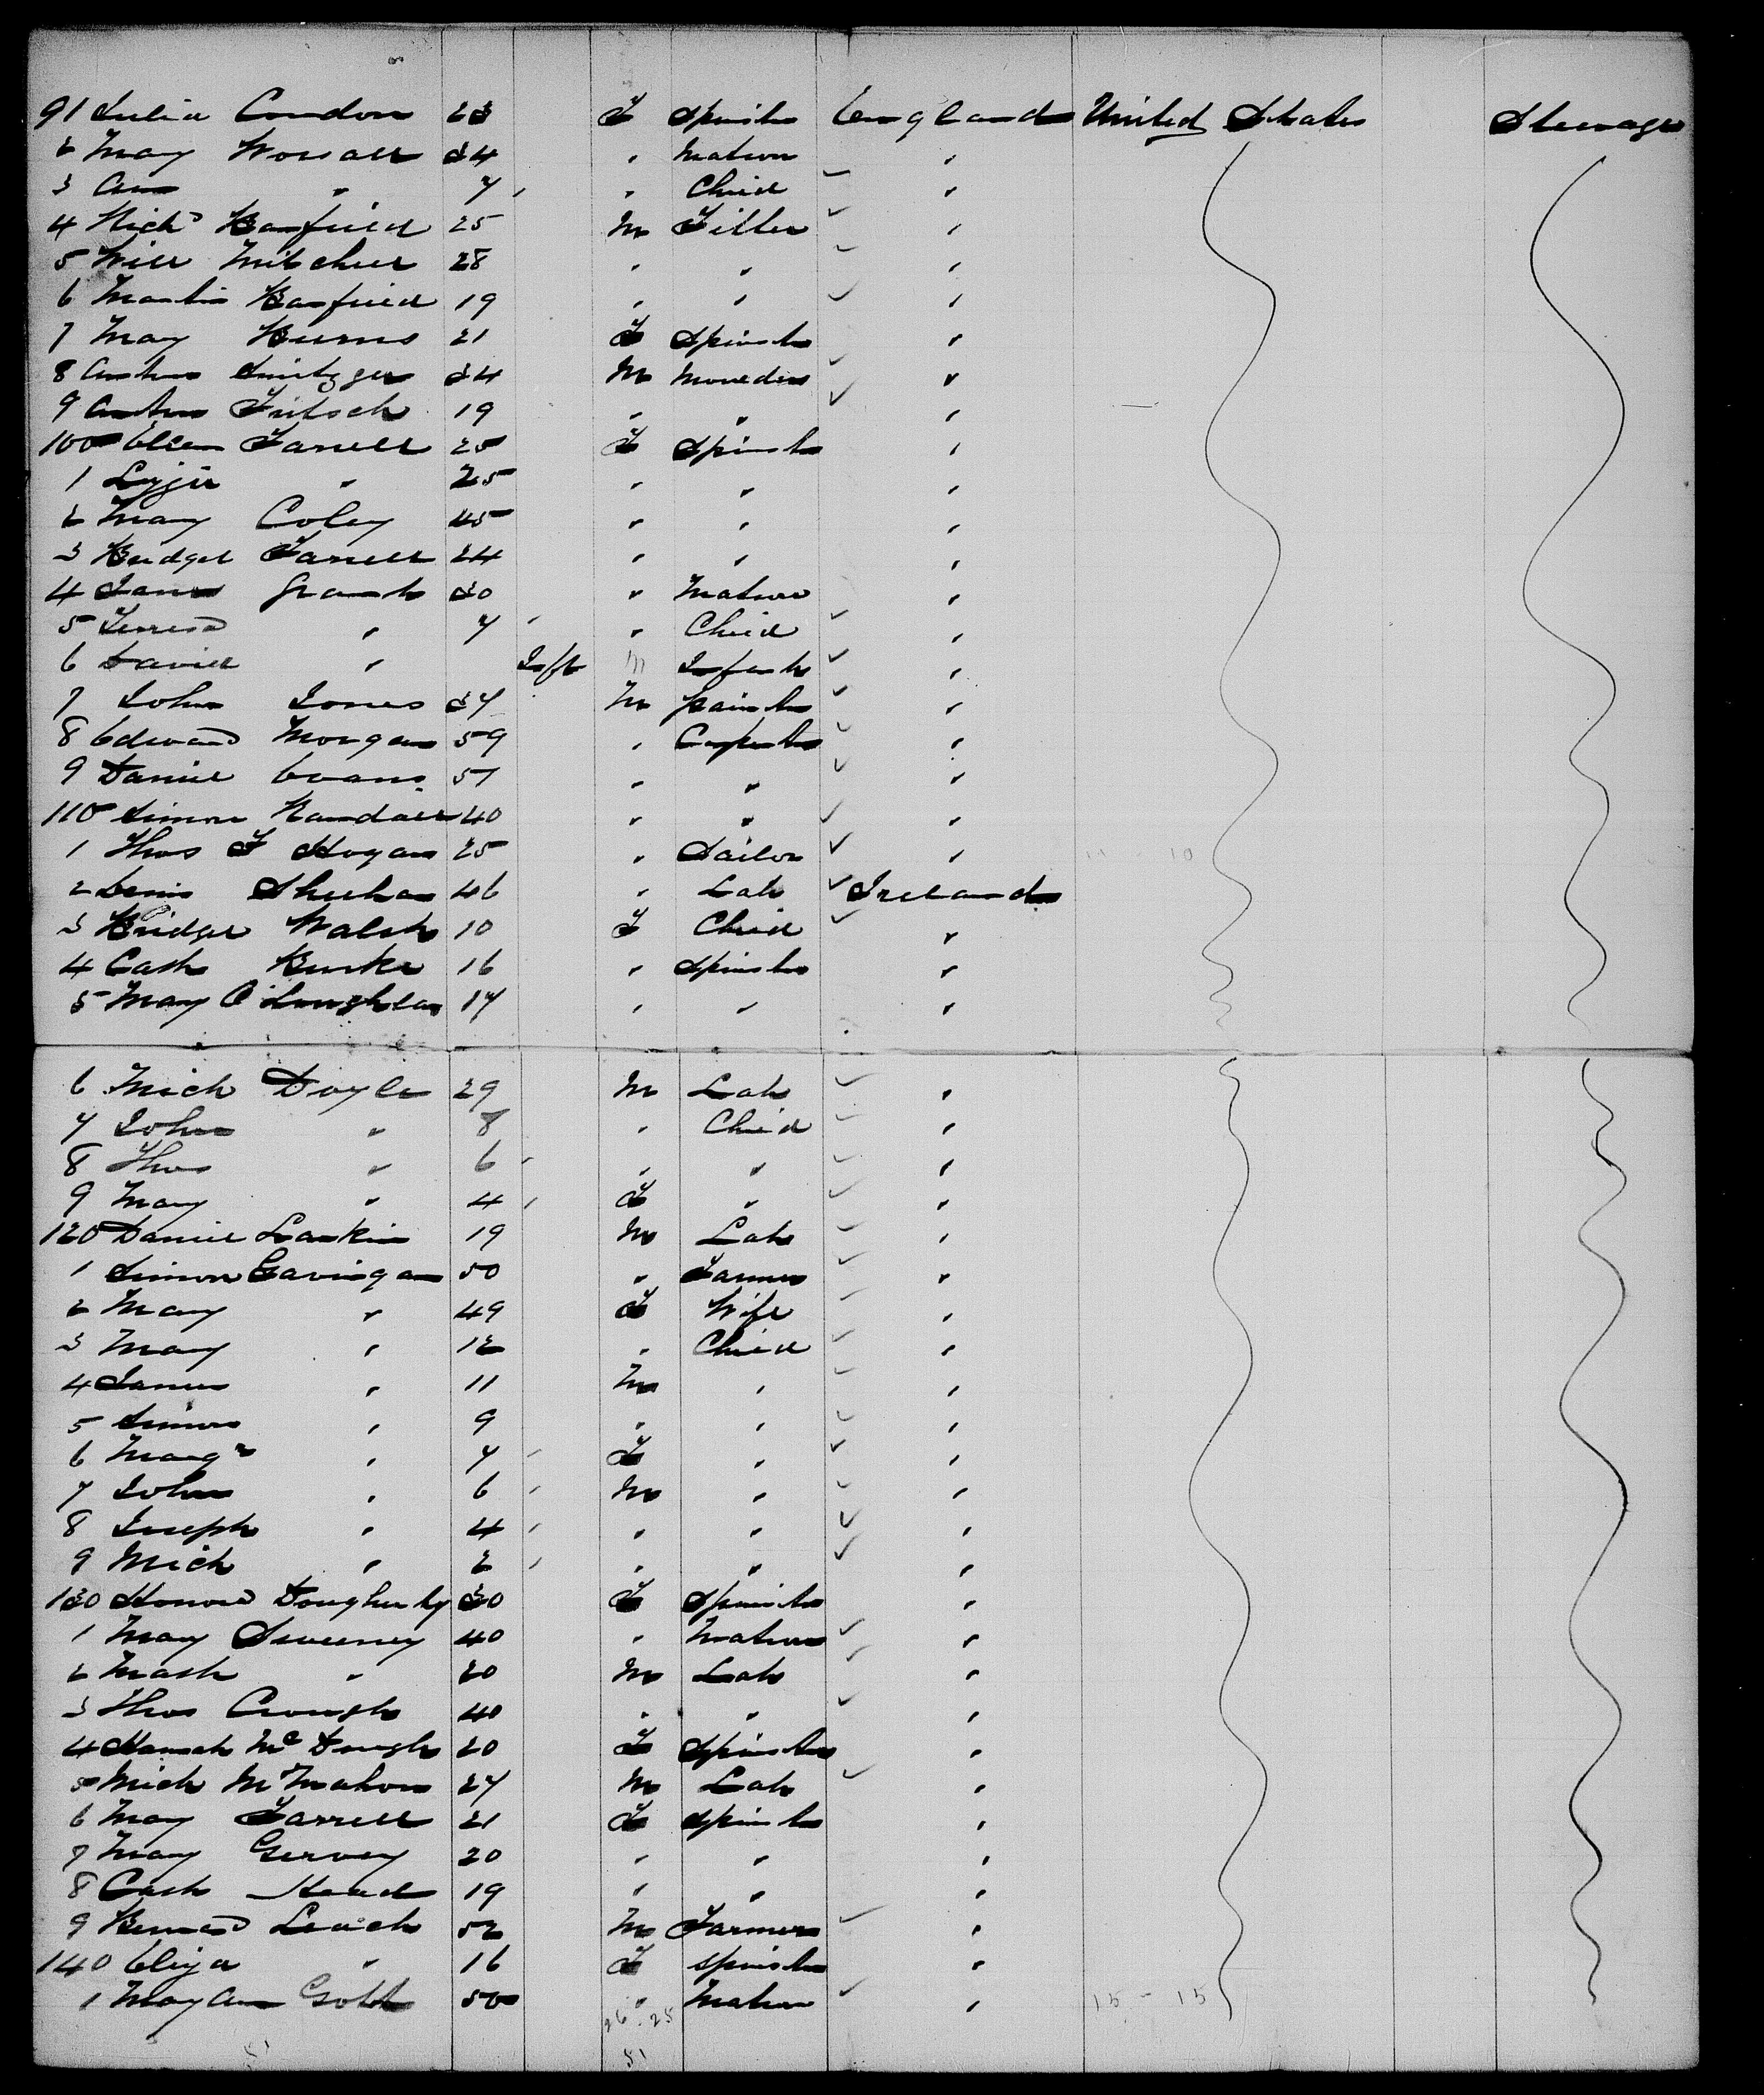 91 Julia Condon 23 F Spinster England United States Steerage
2 Mary Worrall 34 " Matron "
3 Ann " 7 " Child "
4 Rich'd Banfield 25 M Fitter "
5 Will Mitchell 28 " " "
6 Martin Banfield 19 " " "
7 Mary Burns 21 F Spinster "
8 34 M "
9 Fritsch 19 " " "
100 Ellen Farrell 25 F Spinster "
1 Lizzie " 25 " " "
2 Mary Coley 45 " " "
3 Bridget Farrell 24 " " "
4 Jane Grant 30 " Matron "
5 Teresa " 7 " Child "
6 David " Inft M Infant "
7 John Jones 37 M Painter "
8 Edward Morgan 59 " Carpenter "
9 Daniel Evans 57 " " "
110 Simon Randall 40 " " "
1 Thos F Hogan 25 " Sailor "
2 Denis Sheehan 46 " Lab Ireland
3 Bridget Walsh 10 F Child "
4 Cath Burke 16 " Spinster "
5 Mary O'Loughlan 17 " " "
6 Mich Doyle 29 M Lab "
7 John " 8 " Child "
8 Thos " 6 " " "
9 Mary " 4 F " "
120 Daniel Larkin 19 M Lab "
1 Simon Gavingan 50 " Farmer "
2 Mary " 49 F Wife "
3 Mary " 12 " Child "
4 James " 11 M " "
5 Simon " 9 " " "
6 Margt " 7 F " "
7 John " 6 M " "
8 Joseph " 4 " " "
9 Mich " 2 " " "
130 Honora Dougherty 30 F Spinster "
1 Mary Sweeney 40 " Matron "
2 " 20 M Lab "
3 Thos Crough 40 " " "
4 Hannah McDough 20 F Spinster "
5 Mich McMahon 27 M Lab "
6 Mary Farrell 21 F Spinster "
7 Mary Gervey 20 " " "
8 Cath Head 19 " " "
9 Bernard Leach 52 M Farmer "
140 Eliza " 16 F Spinster "
1 Mary Ann Gott 50 " Matron " 15 - 15
26 . 25
51 51